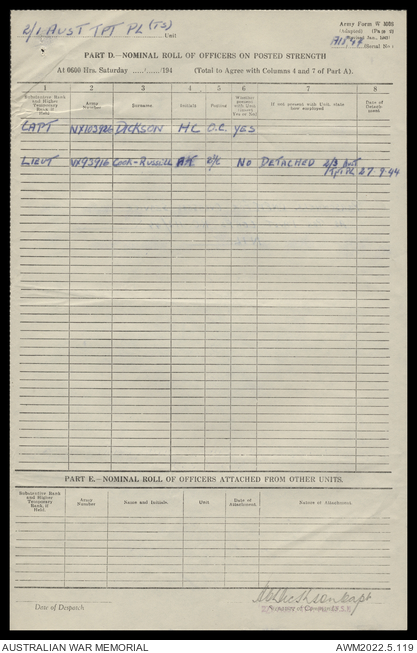 2/1 AUST TPT PL (TS)
Unit
Army Form W 3008
(Adapted) (Page 2)
PART D.—NOMINAL ROLL OF OFFICERS ON POSTED STRENGTH
At 0600 Hrs. Saturday ....../....../194 (Total to Agree with Columns 4 and 7 of Part A).
1 2 3 4 5 6 7 8
Substantive Rank and Higher Temporary Rank, if Held. Army Number Surname Initials Posting Whether present with Unit. (Answer Yes or No) If not present with Unit, state how employed Date of Detachment
CAPT DICKSON HC O.C. YES
LIEUT VX93916 COOK-RUSSELL NO DETACHED 2/3 AUST TPT PL 27.9.44
PART E.—NOMINAL ROLL OF OFFICERS ATTACHED FROM OTHER UNITS.
Substantive Rank and Higher Temporary Rank, if Held. Army Number Name and Initials. Unit Date of Attachment. Nature of Attachment.
Capt
Date of Despatch
AUSTRALIAN WAR MEMORIAL AWM2022.5.119